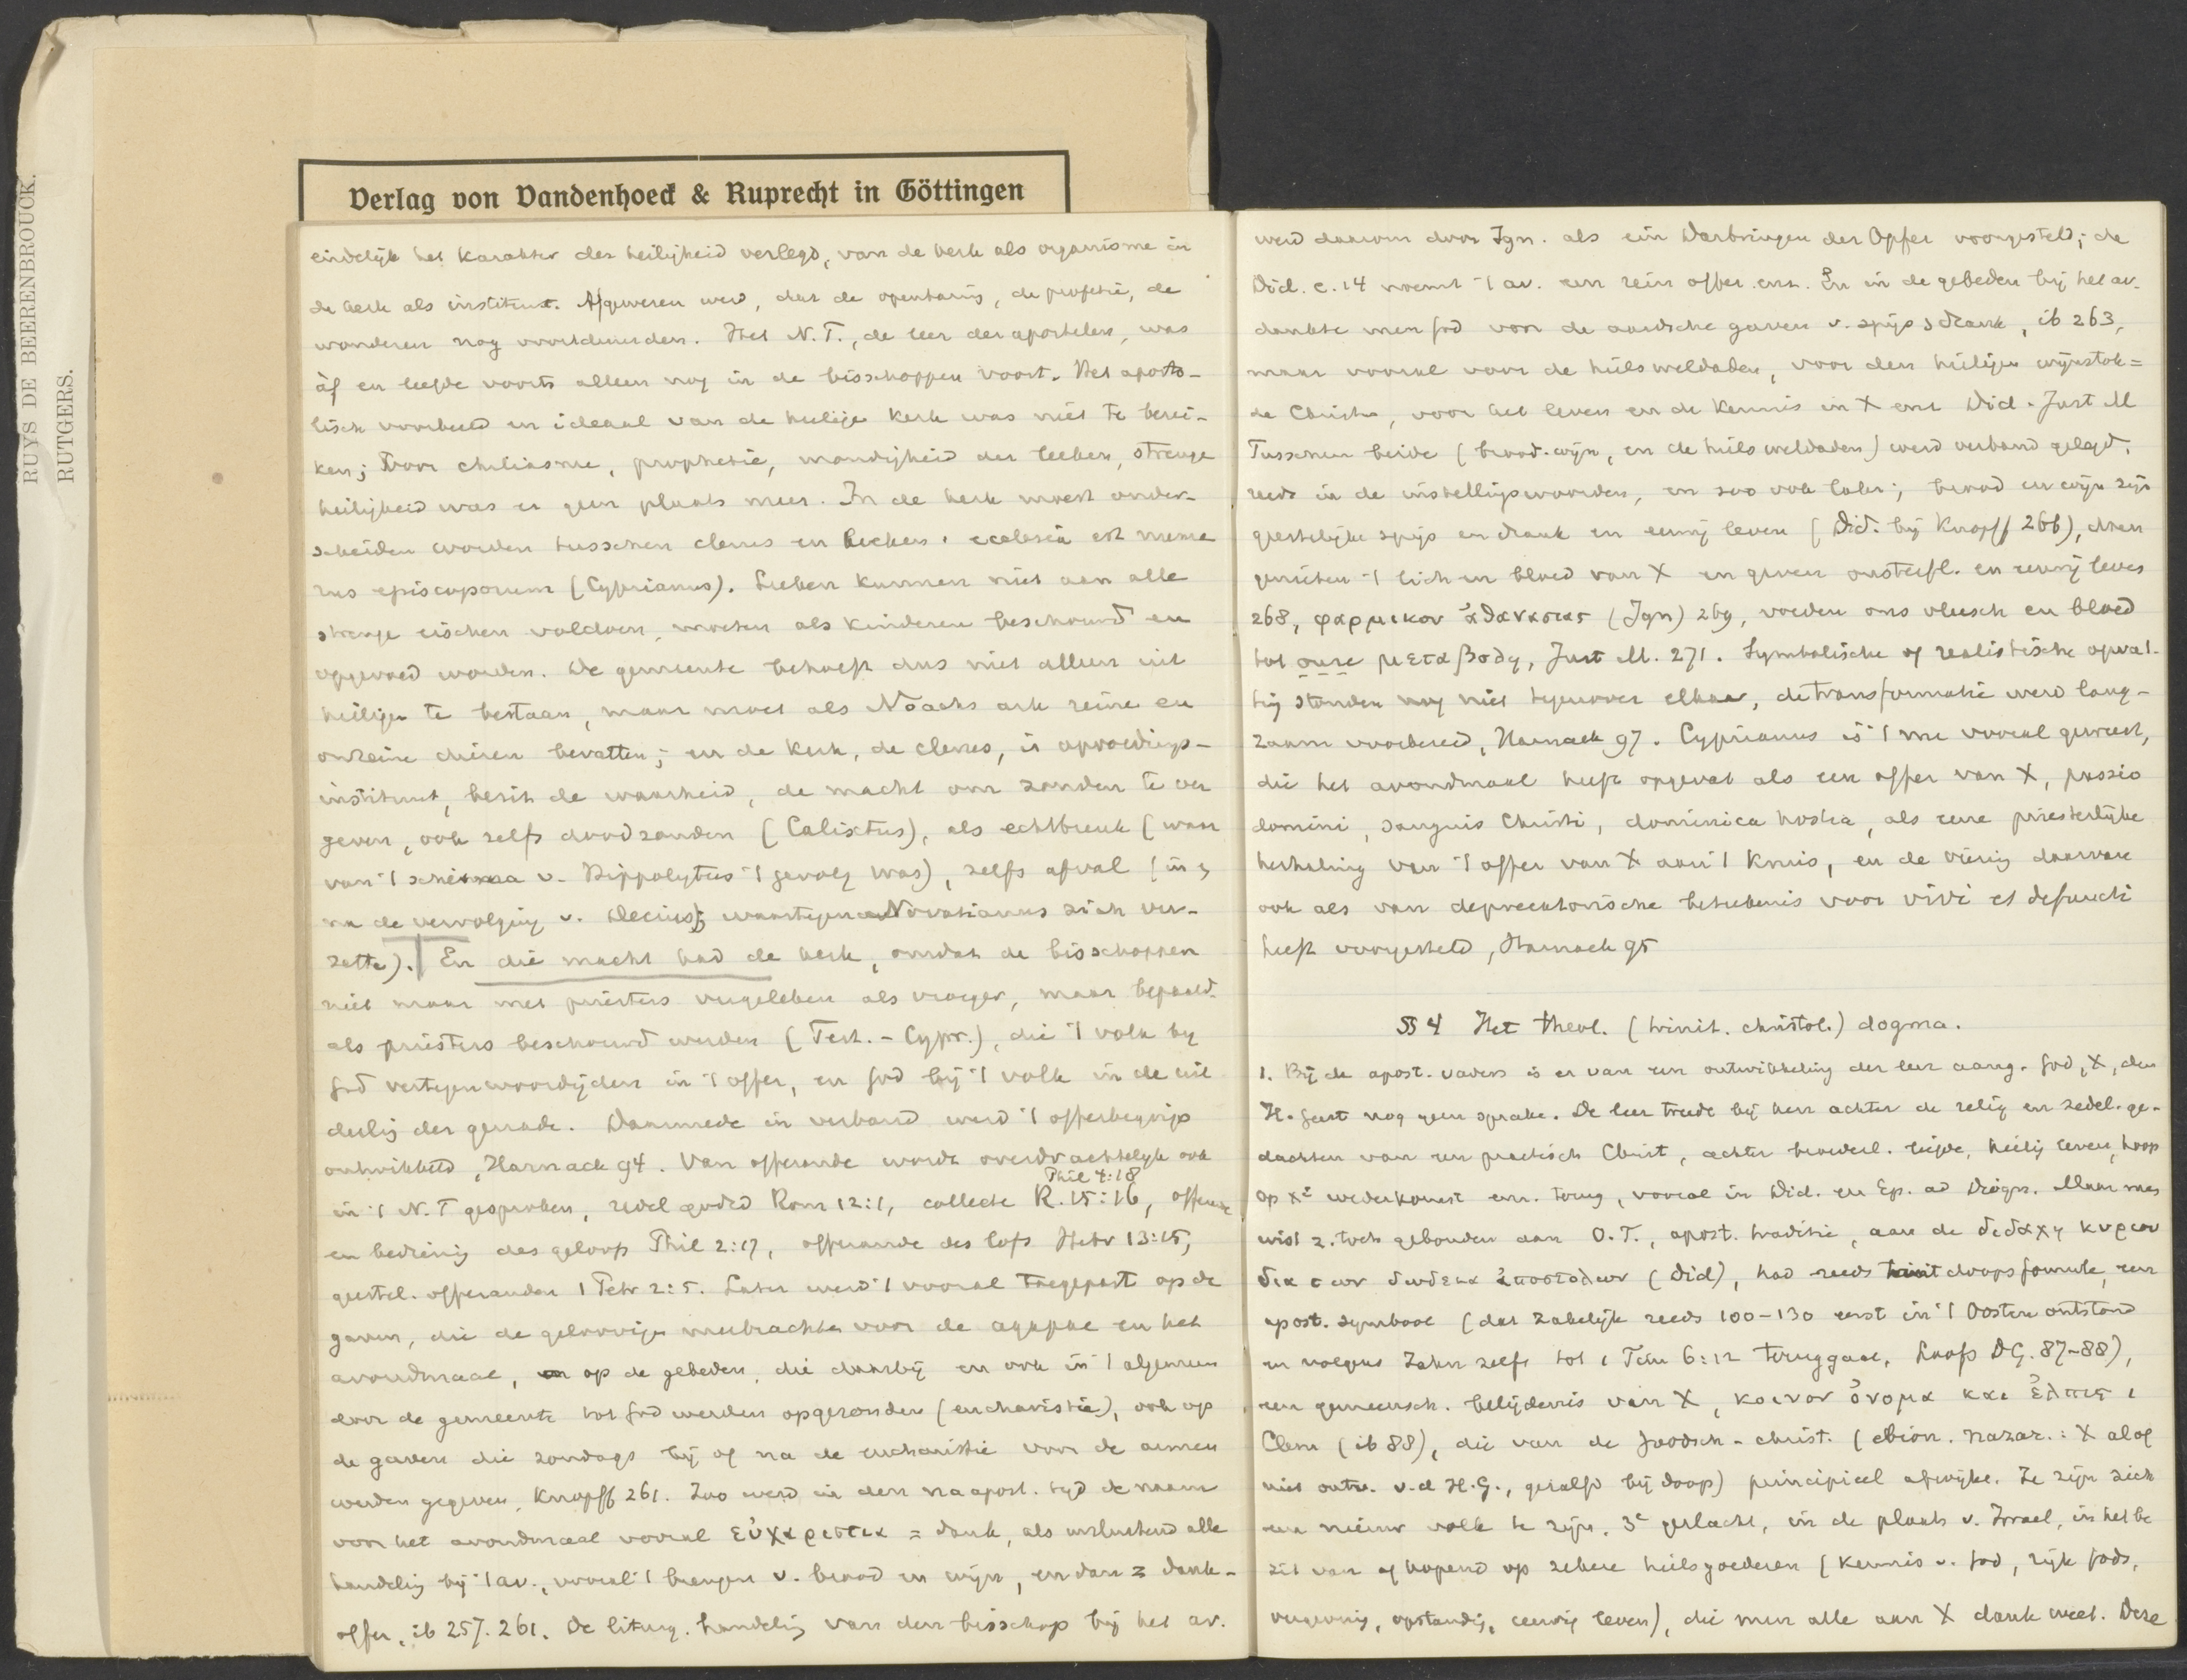 RUYS DE BEERENBROUCK.
RUTGERS.
Verlag von Vandenhoeck & Ruprecht in Göttingen
eindelijk het karakter der heiligheid verlegd, van de kerk als organisme in
de kerk als instituut. Afgewezen werd, dat de openbaring, de profetie, de
wonderen nog voortduurden. Het N.T., de leer der apostelen, was
àf en leefde voorts alleen nog in de bisschoppen voort. Het aposto-
lisch voorbeeld en ideaal van de heilige Kerk was niet te berei-
ken; Voor chiliasme, prophetie, mondigheid der leeken, strenge
heiligheid was er geen plaats meer. In de kerk moest onder-
scheiden worden tusschen clerus en leeken; ecclesia est nume
rus episcoporum (Cyprianus). Leeken kunnen niet aan alle
strenge eischen voldoen, moeten als kinderen beschouwd en
opgevoed worden. De gemeente behoeft dus niet alleen uit
heiligen te bestaan, maar moet als Noachs ark reine en
onreine dieren bevatten; en de kerk, de clerus, is opvoedings-
instituut, bezit de waarheid, de macht om zonden te ver
geven, ook zelfs doodzonden (Calixtus), als echtbreuk (waar
van 't schisma v. Hippolytus 't gevolg was), zelfs afval (in &
na de vervolging v. Decius); waartegen Novatianus zich ver-
zette). En die macht had de kerk, omdat de bisschoppen
niet maar met priesters vergeleken als vroeger, maar bepaald
als priesters beschouwd werden (Tert. - Cypr.), die 't volk by
God vertegenwoordigden in 't offer, en God bij 't volk in de uit
deeling der genade. Daarmede in verband werd 't offerbegrip
ontwikkeld, Harnack 94. Van offerande wordt overdrachtelijk ook
Phil 4:18
in 't N.T gesproken, redel godsd Rom 12:1, collecte R. 15:16, offerande
en bediening des geloofs Phil 2:17, offerande des lofs Hebr 13:15,
geestel. offeranden 1 Petr 2:5. Later werd 't vooral toegepast op de
gaven, die de geloovigen meebrachten voor de agapae en het
avondmaal, op de gebeden, die daarbij en ook in 't algemeen
door de gemeente tot God werden opgezonden (eucharistie), ook op
de gaven die zondags bij of na de eucharistie voor de armen
werden gegeven, Knopff 261. Zoo werd in den naapost. tijd de naam
voor het avondmaal vooral εὐχαριστια = dank, als insluitend alle
handeling bij 't av., vooral 't brengen v. brood en wijn, en dan = dank-
offer, ib 257. 261. De liturg. handeling van den bisschop bij het av.
werd daarom door Ign. als ein Darbringen der Opfer voorgesteld; de
Did. c. 14 noemt 't av. een rein offer enz. En in de gebeden bij het av.
dankte men God voor de aardsche gaven v. spijs & drank, ib 263,
maar vooral voor de heilsweldaden, voor den heiligen wijnstok =
de Christus, voor het leven en de kennis in X enz Did. Just M
Tusschen beide (brood-wijn, en de heilsweldaden) werd verband gelegd,
reeds in de instellingswoorden, en zoo ook later; brood en wijn zijn
geestelijke spijs en drank en eeuwig leven (Did. bij Knopff 266), doen
genieten 't lich en bloed van X en geven onsterfl. en eeuwig leven
268, φαρμακον ἀθανασιας (Ign) 269, voeden ons vleesch en bloed
tot onze μεταβολη, Just M. 271. Symbolische of realistische opvat-
ting stonden nog niet tegenover elkaar, de transformatie werd lang-
zaam voorbereid, Harnack 97. Cyprianus is 't nu vooral geweest,
die het avondmaal heeft opgevat als een offer van X, passio
domini, sanguis Christi, dominica hostia, als eene priesterlijke
herhaling van 't offer van X aan 't kruis, en de viering daarvan
ook als van deprecatorische beteekenis voor vivi et defuncti
heeft voorgesteld, Harnack 95
§§ 4 Het theol. (trinit. christol.) dogma.
1. Bij de apost. vaders is er van een ontwikkeling der leer aang. God, X, den
H. Geest nog geen sprake. De leer treedt bij hen achter de relig en zedel. ge-
dachten van een practisch Christ, achter broederl. liefde, heilig leven, hoop
op Xs wederkomst enz. terug, vooral in Did. en Ep. ad Diogn. Maar men
wist z. toch gebonden aan O.T., apost. traditie, aan de διδαχη κυριου
δια των δωδεκα ἀποστολων (Did), had reeds trinit doopsformule, een
apost. symbool (dat zakelijk reeds 100-130 eerst in 't Oosten ontstond
en volgens Zahn zelfs tot 1 Tim 6:12 teruggaat, Loofs DG. 87-88),
een gemeensch. belijdenis van X, κοινον ὀνομα και ἐλπις 1
Clem (ib 88), die van de Joodsch-christ. (ebion. nazar.: X al of
niet ontv. v.d H.G., gezalfd bij doop) principieel afwijkt. Ze zijn zich
een nieuw volk te zijn, 3e geslacht, in de plaats v. Israel, in het be
zit van of hopend op zekere heilsgoederen (kennis v. God, rijk Gods,
vergeving, opstanding, eeuwig leven), die men alle aan X dank weet. Deze